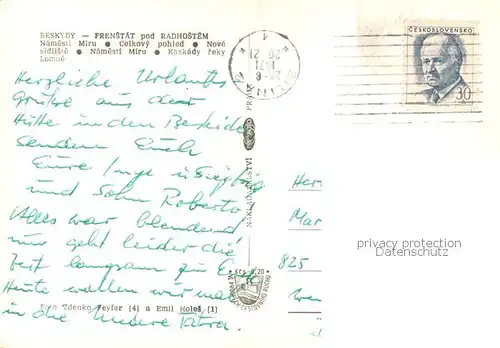 BESKYDY — FRENŠTÁT pod RADHOŠTĚM
Náměstí Míru • Celkový pohled • Nové
sídliště • Náměstí Míru • Kaskády řeky
Lomné
Herzliche Urlaubs
grüße aus der
Hütte in den Beskiden
senden Euch
Eure Inge u Siegfried
und Sohn Roberto
Alles war blendend
nur geht leider die
Zeit langsam zu Ende
Heute wollen wir mal
in die Niedere Tatra.
Foto Zdenko Feyfar (4) a Emil Holeš (1)
NAKLADATELSTVÍ
PRAHA
Kčs 1,20
1971
ČESKOSLOVENSKO
30
Her
Mar
825
privacy protection
Datenschutz